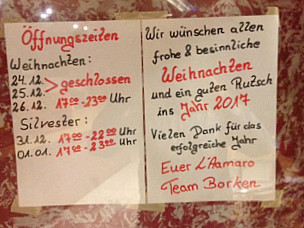 Öffnungszeiten
Weihnachten:
24.12.
25.12. > geschlossen
26.12. 17⁰⁰-23⁰⁰ Uhr
Silvester:
31.12. 17⁰⁰-22⁰⁰ Uhr
01.01. 17⁰⁰-23⁰⁰ Uhr
Wir wünschen allen
frohe & besinnliche
Weihnachten
und ein guten Rutsch
ins Jahr 2017
Vielen Dank für das
erfolgreiche Jahr
Euer L'Aamaro
Team Borken